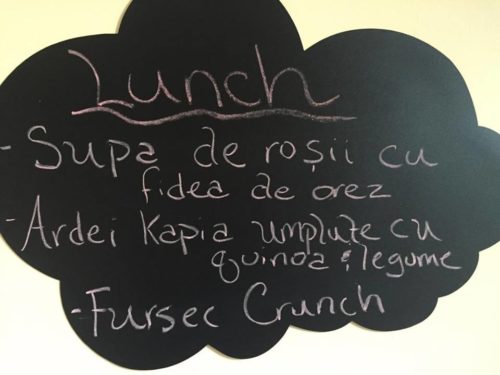 Lunch
- Supa de roșii cu
fidea de orez
- Ardei Kapia umpluțe cu
quinoa & legume
- Fursec Crunch